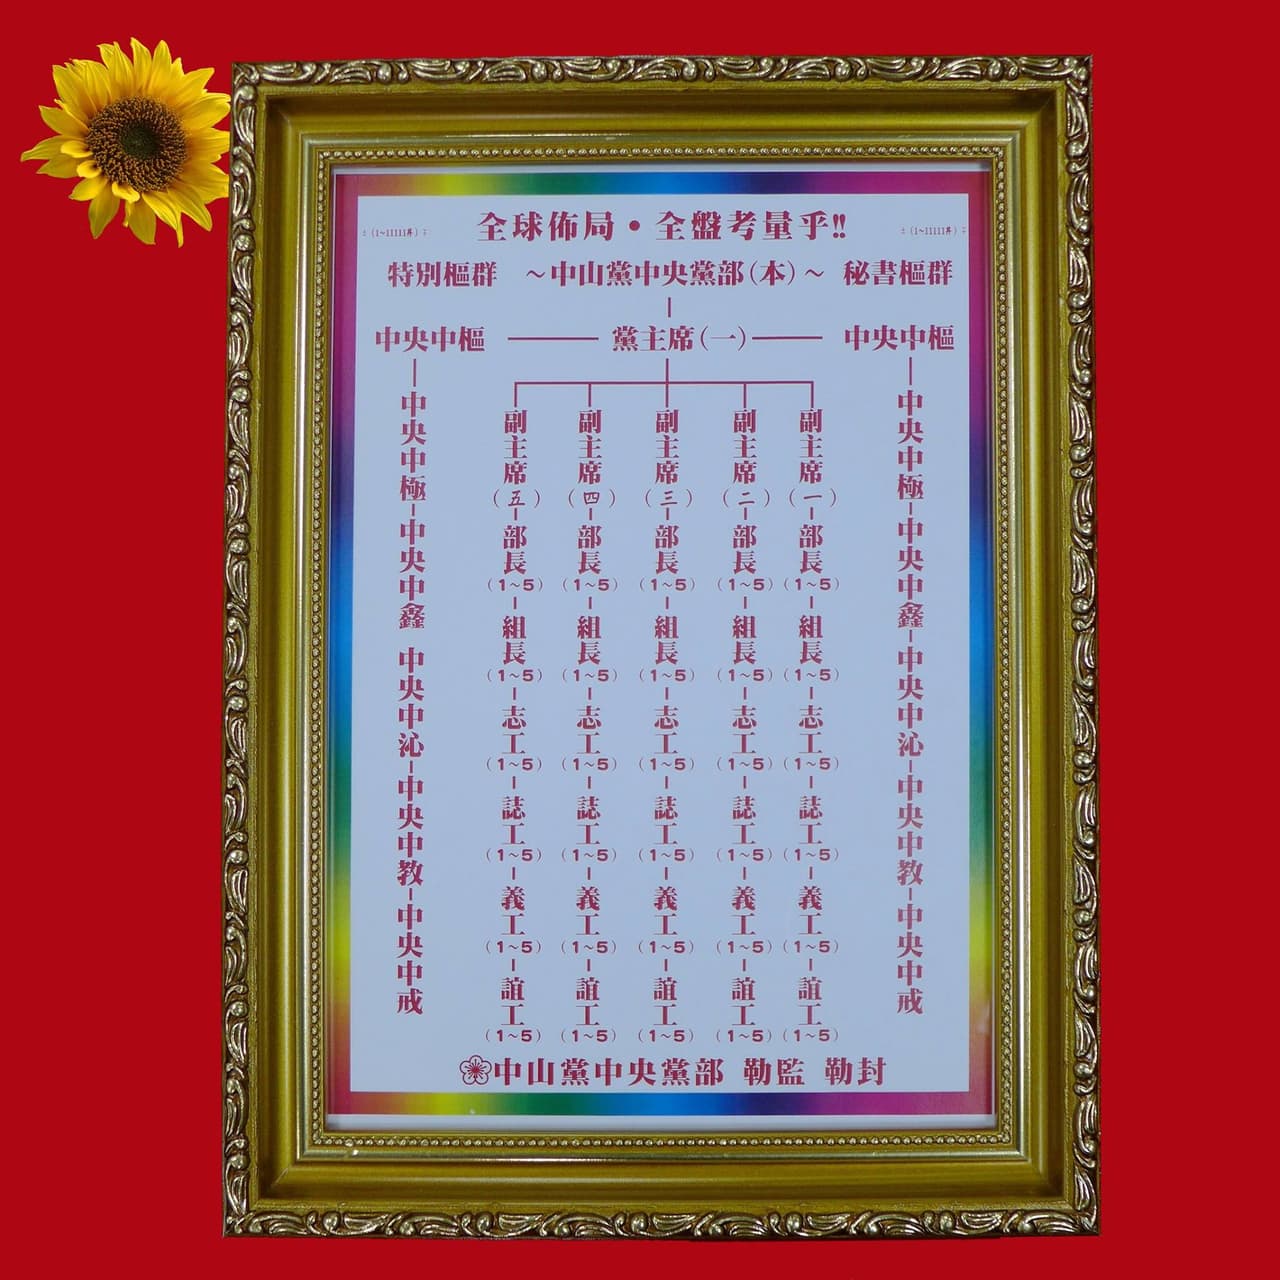 全球佈局・全盤考量乎!!
(1~11111昇)
(1~11111昇)
特別樞群 ~中山黨中央黨部(本)~ 秘書樞群
中央中樞 黨主席(一) 中央中樞
中央中極-中央中鑫 中央中沁-中央中教-中央中戒
副主席(五)-部長(1~5)-組長(1~5)-志工(1~5)-誌工(1~5)-義工(1~5)-誼工(1~5)
副主席(四)-部長(1~5)-組長(1~5)-志工(1~5)-誌工(1~5)-義工(1~5)-誼工(1~5)
副主席(三)-部長(1~5)-組長(1~5)-志工(1~5)-誌工(1~5)-義工(1~5)-誼工(1~5)
副主席(二)-部長(1~5)-組長(1~5)-志工(1~5)-誌工(1~5)-義工(1~5)-誼工(1~5)
副主席(一)-部長(1~5)-組長(1~5)-志工(1~5)-誌工(1~5)-義工(1~5)-誼工(1~5)
中央中極-中央中鑫-中央中沁-中央中教-中央中戒
中山黨中央黨部 勒監 勒封